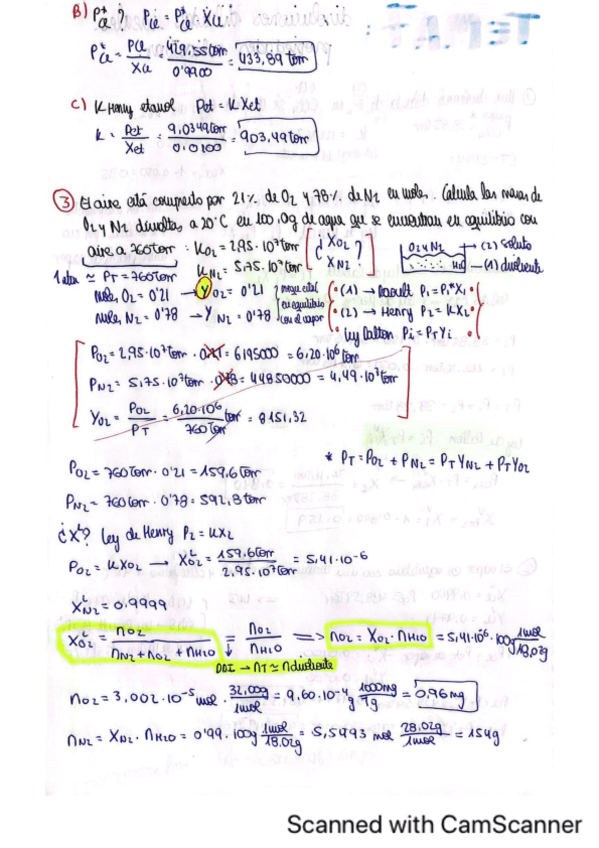 B) P*cl ? Pcl = P*cl Xcl
P*cl = Pcl / Xcl = 429,55 torr / 0'9900 = 433,89 torr
C) K Henry etanol Pet = K Xet
k = Pet / Xet = 9,0349 torr / 0,0100 = 903,49 torr
③ El aire está compuesto por 21% de O2 y 78% de N2 en mols. Calcula las masas de
O2 y N2 disueltas a 20°C en 100,0g de agua que se encuentran en equilibrio con
aire a 760 torr : KO2 = 2,95·10⁷ torr
KN2 = 5,75·10⁷ torr
[ ¿ XO2 XN2 ? ]
O2 y N2 → (2) soluto
H2O → (1) disolvente
1 atm ≃ PT = 760 torr
mols, O2 = 0'21 → YO2 = 0'21
mols, N2 = 0'78 → YN2 = 0'78
en equilibrio
con el vapor
(1) → Raoult P1 = P1*X1
(2) → Henry P2 = KX2
Ley Dalton Pi = PT Yi
PO2 = 2,95·10⁷ torr · 0'21 = 6195000 = 6,20·10⁶ torr
PN2 = 5,75·10⁷ torr · 0'78 = 44850000 = 4,49·10⁷ torr
YO2 = PO2 / PT = 6,20·10⁶ torr / 760 torr = 8151,32
* PT = PO2 + PN2 = PT YN2 + PT YO2
PO2 = 760 torr · 0'21 = 159,6 torr
PN2 = 760 torr · 0'78 = 592,8 torr
¿X^L? Ley de Henry P2 = KX2
PO2 = KXO2 → X^L O2 = 159,6 torr / 2,95·10⁷ torr = 5,41·10⁻⁶
X^L N2 = 0.9999
X^L O2 = nO2 / nN2 + nO2 + nH2O = nO2 / nH2O ⟹ nO2 = XO2 · nH2O = 5,41·10⁻⁶ · 100g 1mol / 18,02g
DDI → nT ≃ n disolvente
nO2 = 3,002·10⁻⁵ mol · 32,00g / 1mol = 9,60·10⁻⁴ g 1000mg / 1g = 0,96 mg
nN2 = XN2 · nH2O = 0'99 · 100g 1mol / 18,02g = 5,5493 mol 28,02g / 1mol = 154g
Scanned with CamScanner